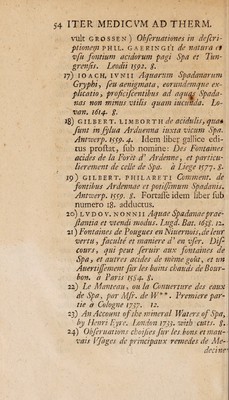 54 ITER MEDICVM AD THERM.
vult GROSSEN) Obseruationes in descri-
ptionem PHIL. GAERINGII de natura et
vsu fontium acidorum pagi Spa et Tun-
grensis. Leodii 1592. 8.
17) IOACH. IVNII Aquarum Spadanarum
Gryphi, seu aenigmata, eorundemque ex-
plicatio, proficiscentibus ad aquas Spada-
nas non minus vtilis quam iucunda. Lo-
van. 1614. 8.
18) GILBERT. LIMBORTH de acidulis, quae
sunt in sylua Arduenna iuxta vicum Spa.
Antwerp. 1559. 4. Idem liber gallice edi-
tus prostat, sub nomine: Des Fontaines
acides de la Forit d' Ardenne, et particu-
lierement de celle de Spa. à Liege 1577. 8.
19) GILBERT. PHILARETI Comment. de
fontibus Ardennae et potissimum Spadanis.
Antwerp. 1559. 8. Fortasse idem liber sub
numero 18. adductus.
20) LVDOV. NONNII Aquae Spadanae prae-
stantia et vtendi modus. Lugd. Bat. 1638. 12.
21) Fontaines de Pougues en Niuernois, de leur
vertu, faculté et maniere d' en vser. Dis-
cours, qui peut seruir aux fontaines de
Spa, et autres acides de mime goût, et un
Auertissement sur les bains chauds de Bour-
bon. à Paris 1584. 8.
22) Le Manteau, ou la Conuerture des eaux
de Spa, par Msr. de W**. Premiere par-
tie à Cologne 1737. 12.
23) An Account of the mineral Waters of Spa,
by Henri Eyre. London 1733. with cutts. 8.
24) Obseruations choisies sur les bons et mau-
vais Vsages de principaux remedes de Me-
decine